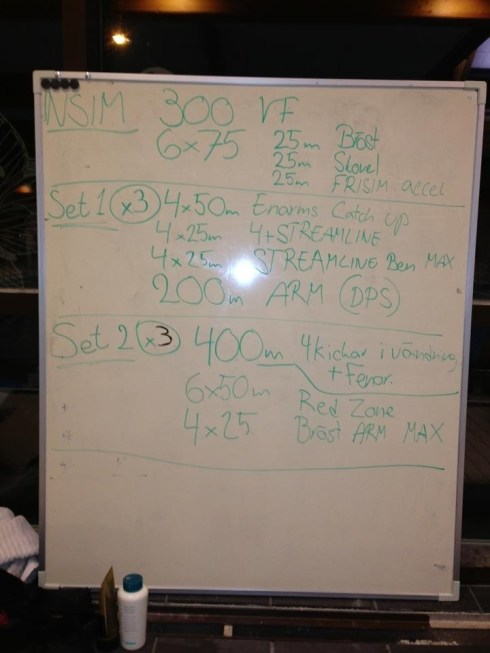 INSIM 300 VF
6x75 25m Bröst
25m Skovel
25m FRISIM accel
Set 1 (x3) 4x50m Enarms Catch up
4x25m 4+STREAMLINE
4x25m STREAMLINE Ben MAX
200m ARM (DPS)
Set 2 (x3) 400m 4 kickar i vändning
+ Fenor.
6x50m Red Zone
4x25 Bröst ARM MAX